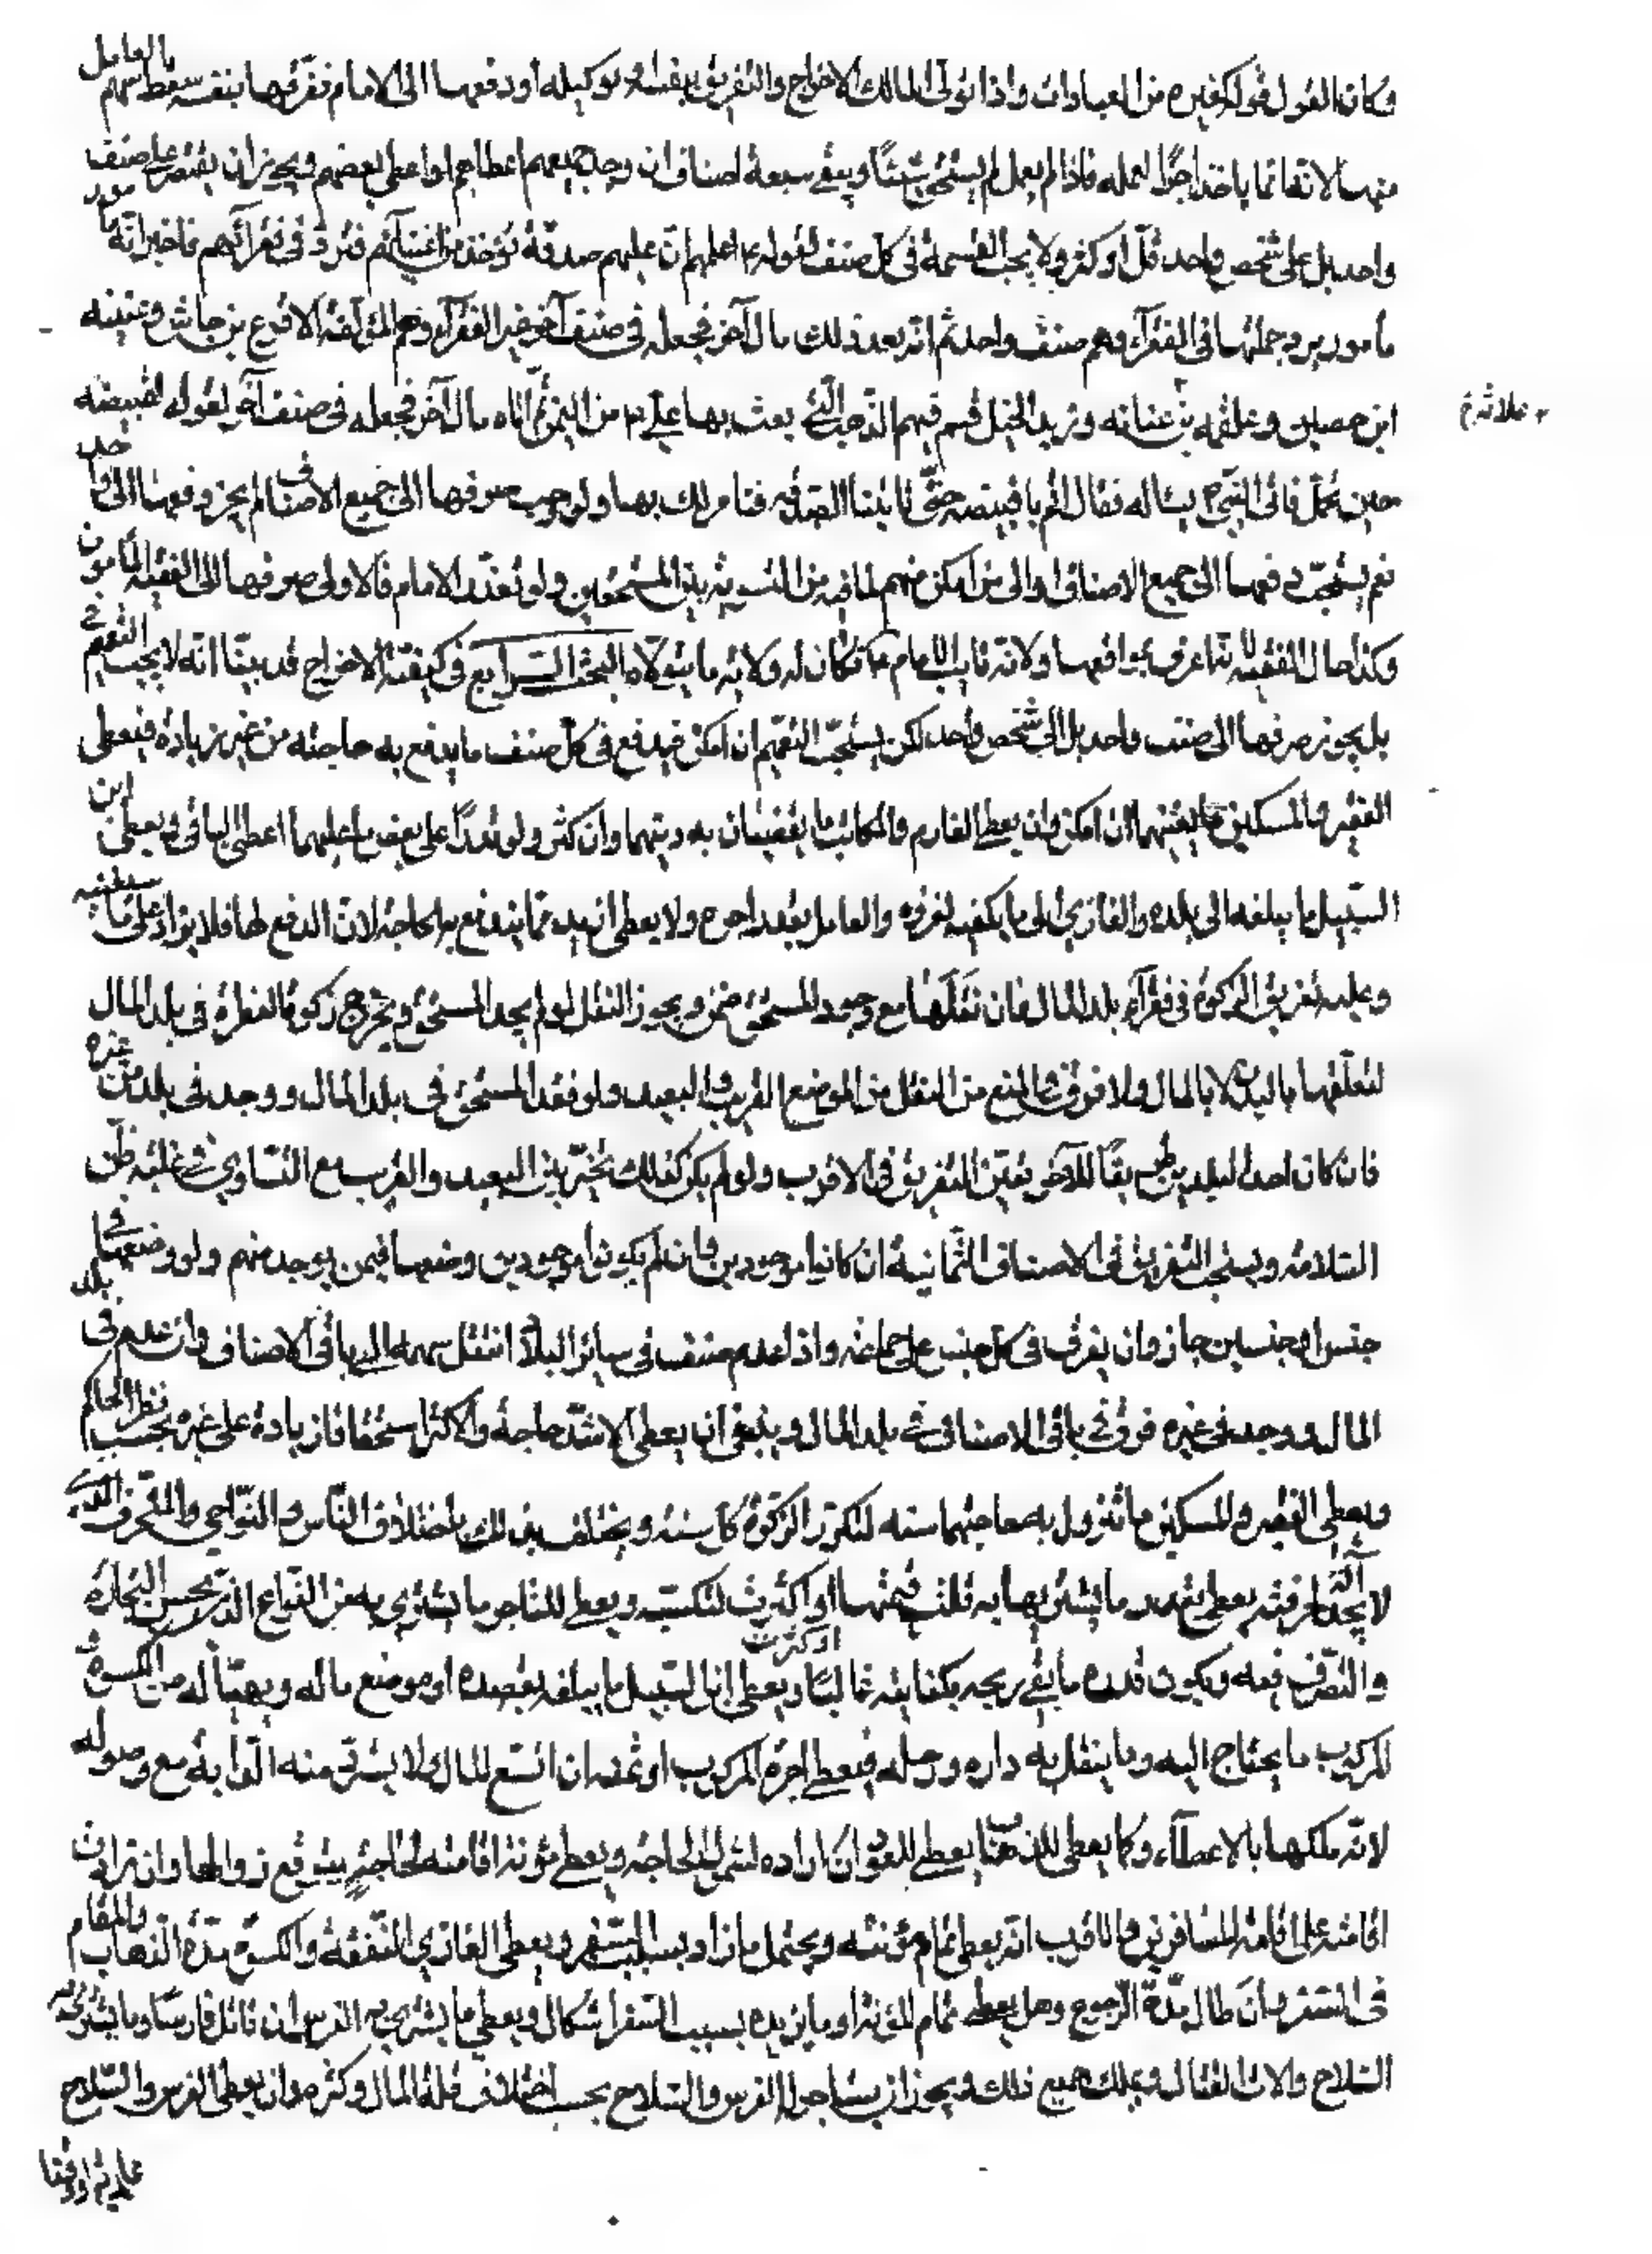 وكان القول قوله كغيره من العبادات واذا تولى المالك الاخراج والتفريق بنفسه او بوكيله أو دفعها الى الامام ففرقها بنفسه سقط سهم العامل
منها لانه انما يأخذ اجرًا لعمله فاذا لم يعمل لم يستحق شيئًا ويبقى سبعة اصناف ان وجد جميعهم اعطاهم او اعطى بعضهم ويجوز ان يقتصر على صنف
واحد بل على شخص واحد قلّ او كثر ولا يجب القسمة في كل صنف لقوله ع اعلمهم ان عليهم صدقة تؤخذ من اغنيائهم فترد في فقرائهم فاخبر انه مأمور
مأمور برد جملتها في الفقراء وهم صنف واحد ثم اتاه بعد ذلك مال آخر فجعله في صنف آخر غير الفقراء وهم المؤلفة الاقرع بن حابس وعيينه
ابن حصين وعلقمه بن علاثه وزيد الخيل قسم فيهم الذهب التي بعث بها علي ع من اليمن ثم اتاه مال آخر فجعله في صنف آخر لقوله لقبيصه
علاثه خ
حين تحمل فاتى النبي ص يسأله فقال اقم يا قبيصه حتى تاتينا الصدقه فنامر لك بها ولو وجب صرفها الى جميع الاصناف لم يجز دفعها الى واحد
نعم يستحب دفعها الى جميع الاصناف او الى من امكن منهم لما فيه من التسويه بين المستحقين ولو تعذر الامام فالاولى صرفها الى الفقيه المأمون
وكذا حال الغيبه لانه اعرف بمواقعها ولانه نايب الامام ع فكان له ولايه ما يتولاه البحث الرابع في كيفية الاخراج قد بينا انه لا يجب التعميم
بل يجوز صرفها الى صنف واحد بل الى شخص واحد لكن يستحب التعميم ان امكن فيدفع في كل صنف ما يدفع به حاجته من غير زيادة فيعطى
الفقير والمسكين ما يغنيهما ان امكن وان يعطى الغارم والمكاتب ما يقضيان به دينهما وان كثر ولو قدرا على بعض ما عليهما اعطى الباقي ويعطى ابن
السبيل ما يبلغه الى بلده والغازي ما يكفيه لغزوه والعامل بقدر اجره ولا يعطى ازيد مما يندفع به الحاجة لان الدفع لها فلا يزاد على ما
وعليه تفريق الزكوة في فقراء بلد المال فان نقلها مع وجود المستحق ضمن ويجوز النقل لو لم يجد المستحق ويخرج زكوة الفطرة في بلد المال
لتعلقها بالبدن لا بالمال ولا فرق في المنع من النقل من الموضع القريب والبعيد ولو فقد المستحق في بلد المال ووجد في بلدين غيره
فان كان احد البلدين طريقًا للآخر تعين التفريق في الاقرب ولو لم يكن كذلك تخير بين البعيد والقريب مع التساوي في غلبة ظن
السلامة ويستحب التفريق في الاصناف الثمانية ان كانوا موجودين وان لم يكونوا موجودين وضعها فيمن يوجد منهم ولو وضعها في
جنس او جنسين جاز وان يفرق في كل جنس على جماعة واذا عدم صنف في ساير البلاد انتقل سهمه الى باقي الاصناف وان عدم في بلد
المال ووجد في غيره فرق في باقي الاصناف في بلد المال وينبغي ان يعطى الاشد حاجة والاكثر استحقاقا زيادة على غيره بحسب نظر الحاكم
ويعطى الفقير والمسكين ما تزول به حاجتهما سنه لتكرر الزكوة كل سنة ويختلف ذلك باختلاف الناس والنواحي والمحترف الذي
لا يجد آلة حرفته يعطى بقدر ما يشتريها به قلت قيمتها او كثرت لتكسب ويعطى للتاجر ما يشتري به من المتاع الذي يحسن التجارة
او كثرت
والتصرف فيه ويكون قدره ما يفي ربحه بكفايته غالبًا ويعطى ابن السبيل ما يبلغه بقصده او موضع ماله ويهيأ له من الكسوة و
المركوب ما يحتاج اليه وما ينقل به داره ورحله فيعطى اجرة المركوب او ثمنه ان اتسع المال ولا يسترد منه الدابة مع وصوله
لانه ملكها بالاعطاء وكما يعطى للذهاب يعطى للعود ان اراده لشمول الحاجه ويعطى مؤنة اقامته لحاجة يتوقع زوالها وان زادت
اقامته على اقامة المسافرين والاقرب انه يعطى تمام مؤنته ويحتمل ما زاد بسبب السفر ويعطى الغازي النفقة والكسوة مدة الذهاب والمقام
في الثغر وان طال مدة الرجوع وهل يعطى تمام المؤنة او ما يزيده بسبب السفر اشكال ويعطى ما يشتري به الفرس ان قاتل فارسًا وما يشتري به
السلاح والات القتال ويملك جميع ذلك ويجوز ان يستاجر له الفرس والسلاح بحسب اختلاف قلة المال وكثرته وان يعطى الفرس والسلاح
عارية او وقفا